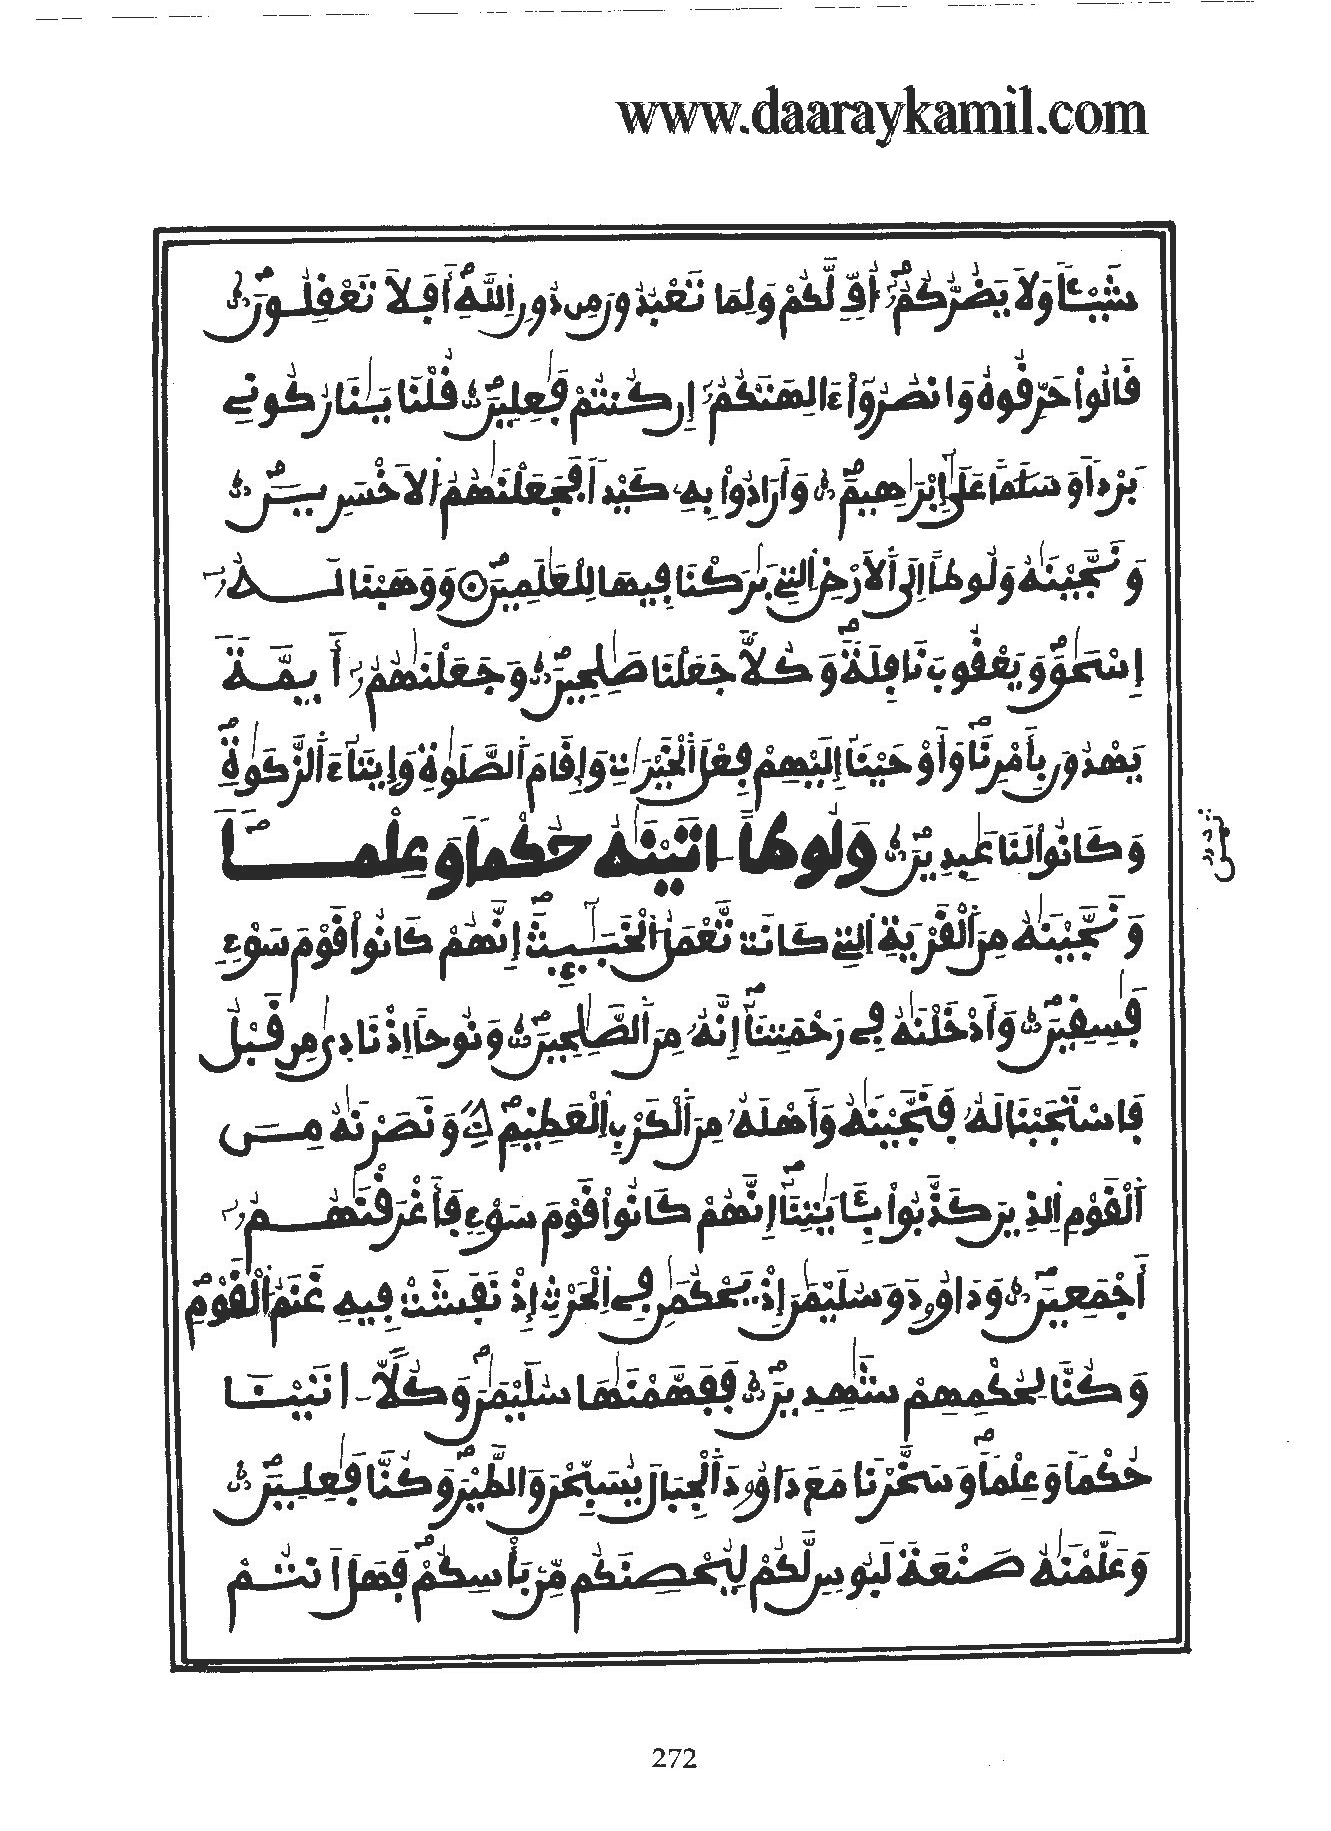 www.daaraykamil.com
شَيْـٔاً وَلَا يَضُرُّكُمُۥٓ أُفٍّ لَّكُمْ وَلِمَا تَعْبُدُونَ مِن دُونِ اِللَّهِ أَفَلَا تَعْقِلُونَ
قَالُواْ حَرِّقُوهُ وَانصُرُوٓاْ ءَالِهَتَكُمُۥٓ إِن كُنتُمْ فَٰعِلِينَ قُلْنَا يَٰنَارُ كُونِے
بَرْداً وَسَلَٰماً عَلَىٰٓ إِبْرَٰهِيمَ وَأَرَادُواْ بِهِۦ كَيْداً فَجَعَلْنَٰهُمُ اُلَاخْسَرِينَ
وَنَجَّيْنَٰهُ وَلُوطاً اِلَى اَلَارْضِ اِلتِے بَٰرَكْنَا فِيهَا لِلْعَٰلَمِينَ وَوَهَبْنَا لَهُۥٓ
إِسْحَٰقَ وَيَعْقُوبَ نَافِلَةً وَكُلّاً جَعَلْنَا صَٰلِحِينَ وَجَعَلْنَٰهُمُۥٓ أَيِمَّةً
يَهْدُونَ بِأَمْرِنَا وَأَوْحَيْنَآ إِلَيْهِمْ فِعْلَ اَلْخَيْرَٰتِ وَإِقَامَ اَلصَّلَوٰةِ وَإِيتَآءَ اَلزَّكَوٰةِ
وَكَانُواْ لَنَا عَٰبِدِينَ وَلُوطاً اٰتَيْنَٰهُ حُكْماً وَعِلْماً
وَنَجَّيْنَٰهُ مِنَ اَلْقَرْيَةِ اِلتِے كَانَت تَّعْمَلُ اُلْخَبَٰٓئِثَ إِنَّهُمْ كَانُواْ قَوْمَ سَوْءٖ
فَٰسِقِينَ وَأَدْخَلْنَٰهُ فِے رَحْمَتِنَآ إِنَّهُۥ مِنَ اَلصَّٰلِحِينَ وَنُوحاً اِذْ نَادَىٰ مِن قَبْلُ
فَاسْتَجَبْنَا لَهُۥ فَنَجَّيْنَٰهُ وَأَهْلَهُۥ مِنَ اَلْكَرْبِ اِلْعَظِيمِ وَنَصَرْنَٰهُ مِنَ
اَلْقَوْمِ اِلذِينَ كَذَّبُواْ بِـَٔايَٰتِنَآ إِنَّهُمْ كَانُواْ قَوْمَ سَوْءٖ فَأَغْرَقْنَٰهُمُۥٓ
أَجْمَعِينَ وَدَاوُۥدَ وَسُلَيْمَٰنَ إِذْ يَحْكُمَٰنِ فِے اِلْحَرْثِ إِذْ نَفَشَتْ فِيهِ غَنَمُ اُلْقَوْمِ
وَكُنَّا لِحُكْمِهِمْ شَٰهِدِينَ فَفَهَّمْنَٰهَا سُلَيْمَٰنَ وَكُلّاً اٰتَيْنَا
حُكْماً وَعِلْماً وَسَخَّرْنَا مَعَ دَاوُۥدَ اَلْجِبَالَ يُسَبِّحْنَ وَالطَّيْرَ وَكُنَّا فَٰعِلِينَ
وَعَلَّمْنَٰهُ صَنْعَةَ لَبُوسٍ لَّكُمْ لِيُحْصِنَكُم مِّنۢ بَأْسِكُمْ فَهَلَ اَنتُمْ
272